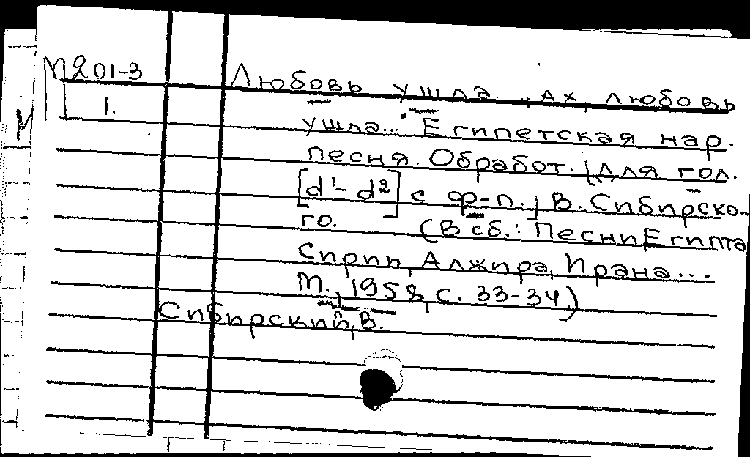 М201-3 Любовь ушла... Ах, любовь
1. ушла... Египетская нар.
песня. Обработ. (для гол.
[d¹- d²] с ф-п.) В. Сибирско-
го. (В сб.: Песни Египта
Сирии, Алжира, Ирана...
М., 1958, с. 33-34)
Сибирский, В.